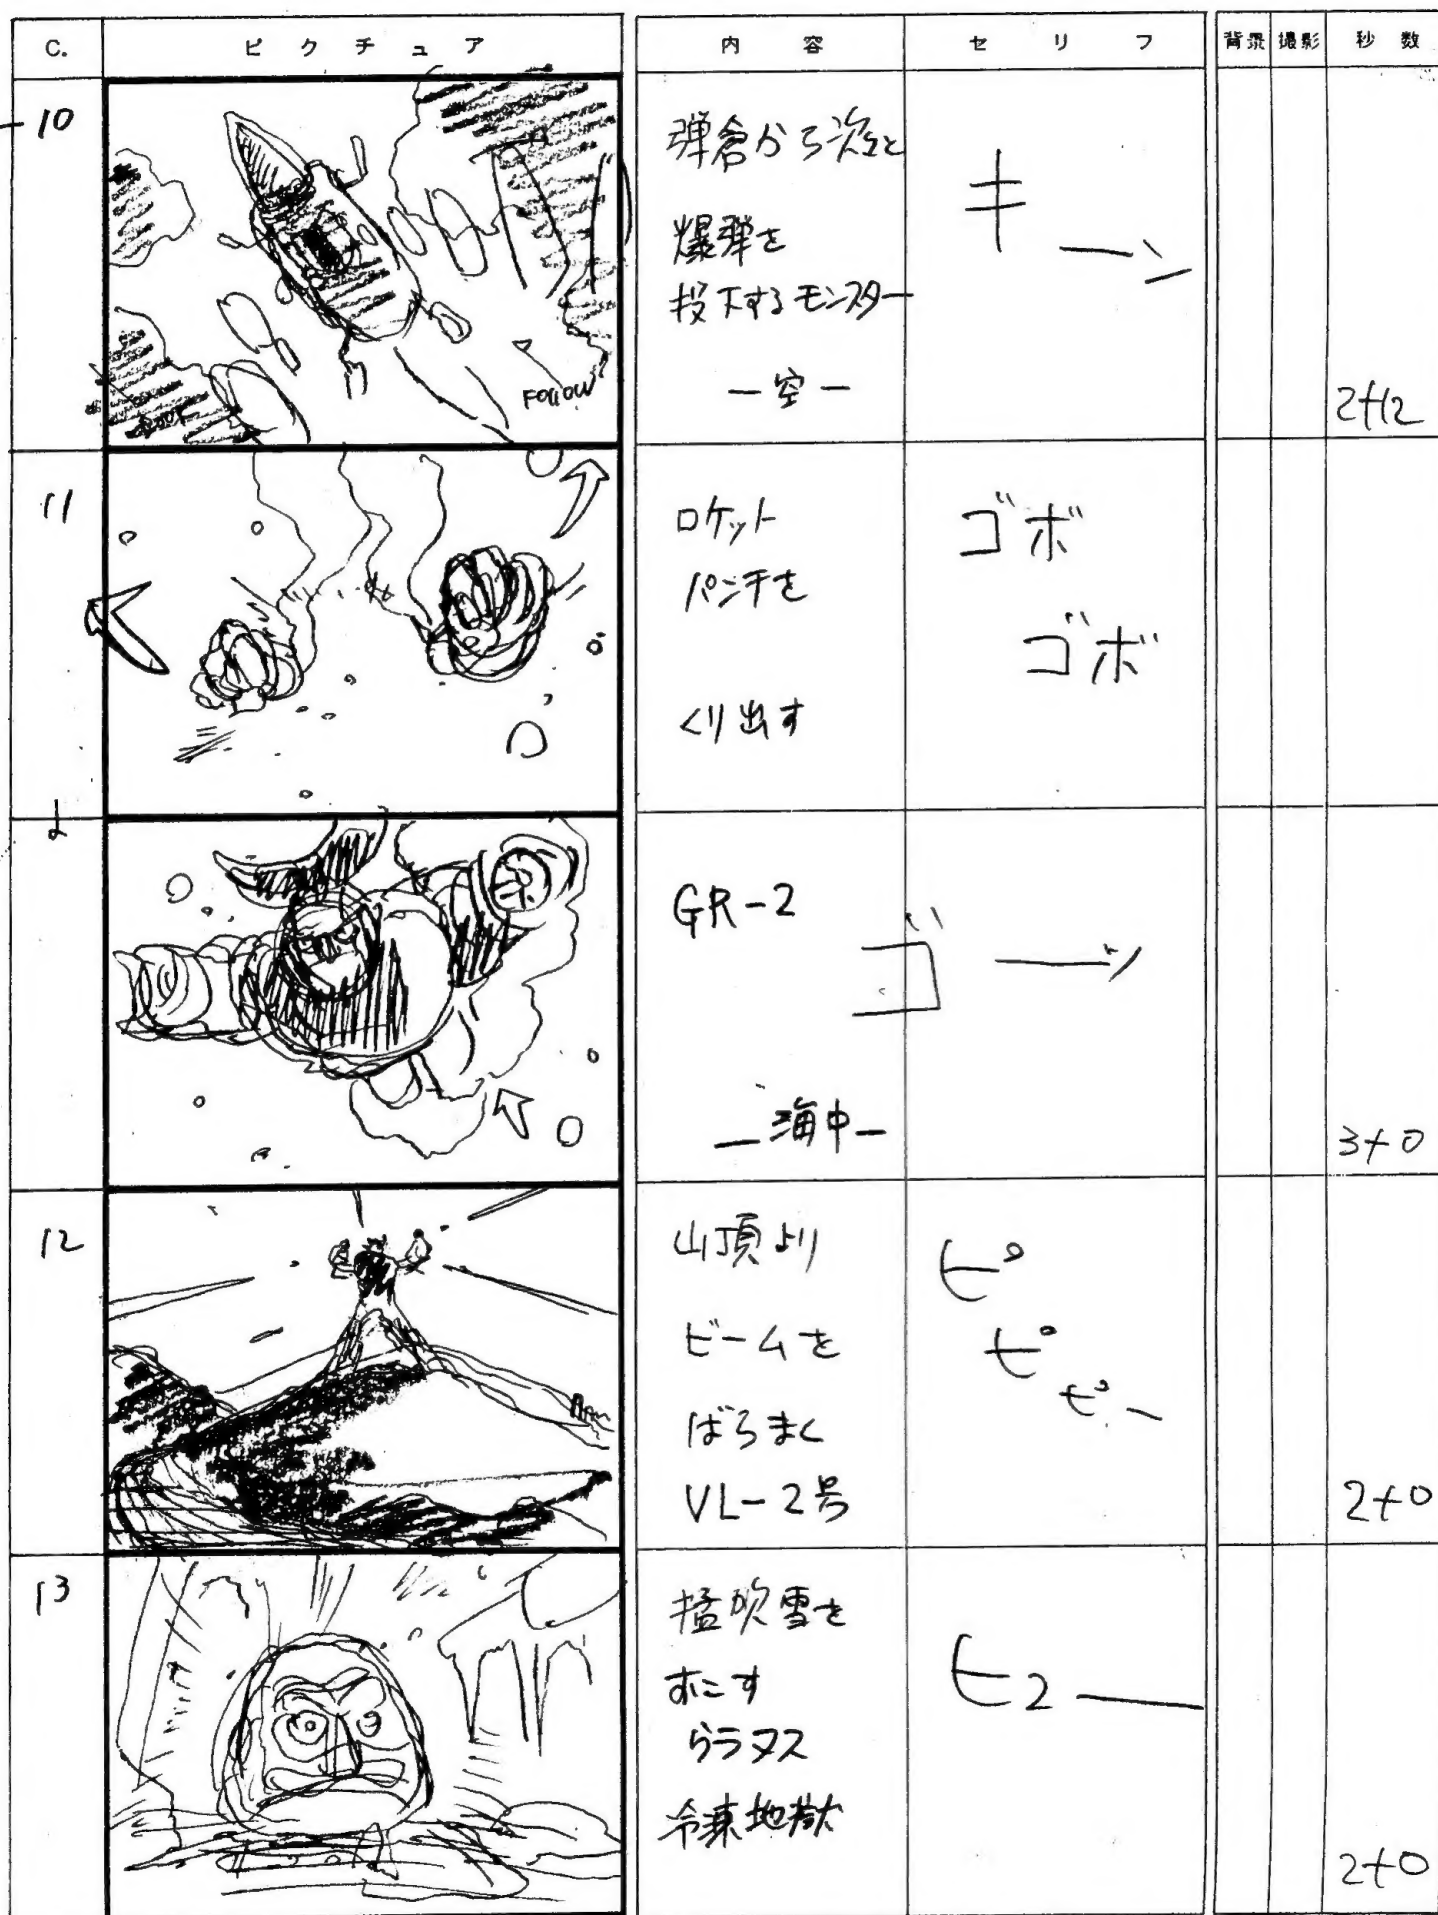 C. ピクチュア 内容 セリフ 背景 撮影 秒数
10
FOLLOW
BOOK
弾倉から次々と
爆弾を
投下するモンスター
ー空ー
キーン
2+12
11
ロケット
パンチを
くり出す
ゴボ
ゴボ
GR-2
ー海中ー
ゴーッ
3+0
12
山頂より
ビームを
ばらまく
VL-2号
ピ
ピ
ピー
2+0
13
猛吹雪を
おこす
うラヌス
冷凍地獄
2+0